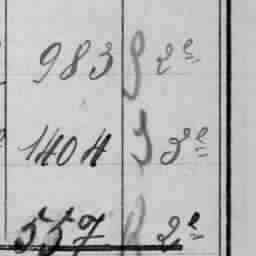 983 2e
1404 3e
557 2e